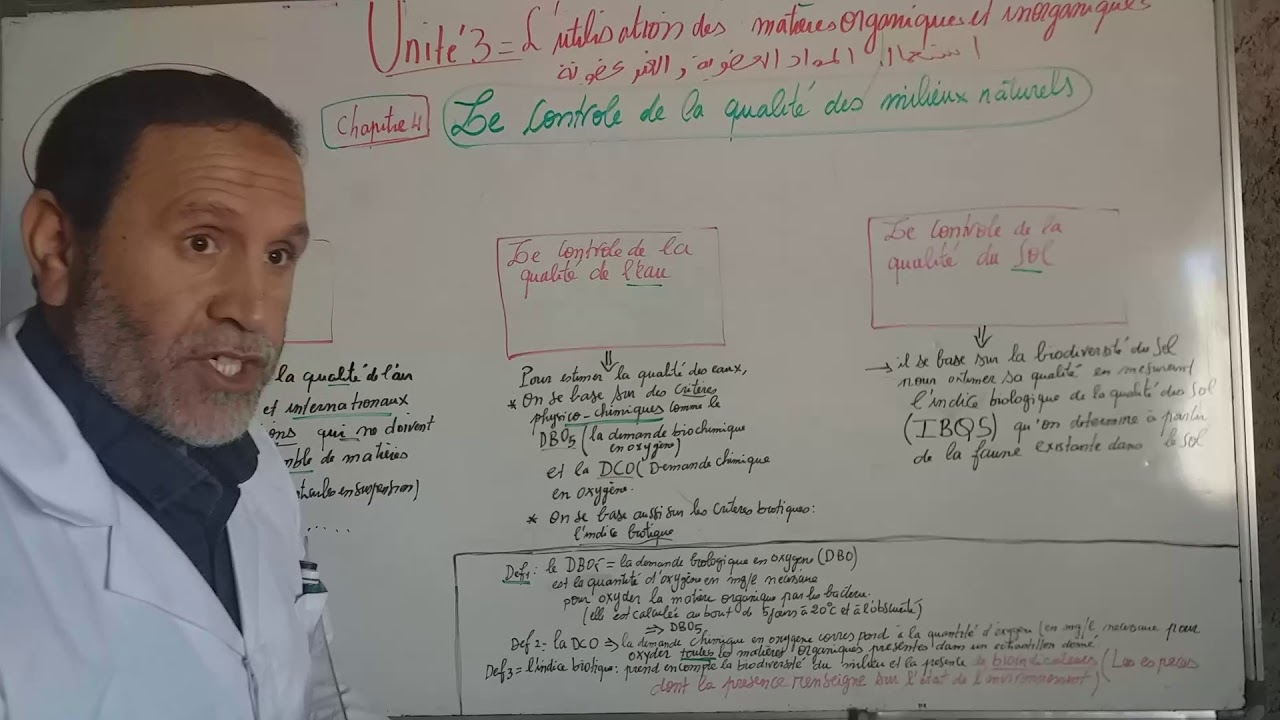 Unité 3 = L'utilisation des matières organiques et inorganiques
استعمال المواد العضوية و الغير عضوية
Chapitre 4
Le controle de la qualité des milieux naturels
la qualité de l'air
et internationaux
ons qui ne doivent
mble de matières
rticules en suspension)
.....
Le controle de la
qualité de l'eau
Pour estimer la qualité des eaux,
* On se base sur des critères
physico-chimiques comme le
DBO5 (la demande biochimique
en oxygène)
et la DCO (Demande chimique
en oxygène.
* On se base aussi sur les critères biotiques:
l'indice biotique
Le controle de la
qualité du Sol
→ il se base sur la biodiversité du Sol
pour estimer sa qualité en mesurant
l'indice biologique de la qualité du Sol
(IBQS) qu'on determine à partir
de la faune existante dans le sol
Def1: le DBO5 = la demande biologique en oxygène (DBO)
est la quantité d'oxygène en mg/l necessaire
pour oxyder la matière organique par les bacteries.
(elle est calculée au bout de 5 jours à 20°c et à l'obscurité)
⇒ DBO5
Def 2 = la DCO ⇒ la demande chimique en oxygene correspond à la quantité d'oxygen (en mg/l necessaire pour
oxyder toutes les matières organiques presentes dans un échantillon donné.
Def3 = l'indice biotique: prend en compte la biodiversité du milieu et la presence de bioindicateurs (Les especes
dont la presence renseigne sur l'état de l'environnement)